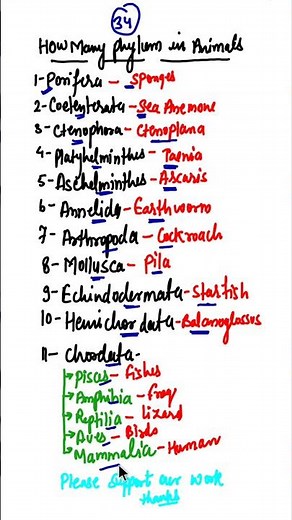 34
How Many phylum in Animals
1- Porifera - Sponges
2- Coelenterata - Sea Anemone
3- Ctenophora - Ctenoplana
4- Platyhelminthes - Taenia
5- Aschelminthes - Ascaris
6- Annelida - Earthworm
7- Arthropoda - Cockroach
8- Mollusca - Pila
9- Echinodermata - Starfish
10- Hemichordata - Balanoglossus
11- Chordata -
→ Pisces - Fishes
→ Amphibia - Frog
→ Reptilia - Lizard
→ Aves - Birds
→ Mammalia - Human
Please Support our work
thanks